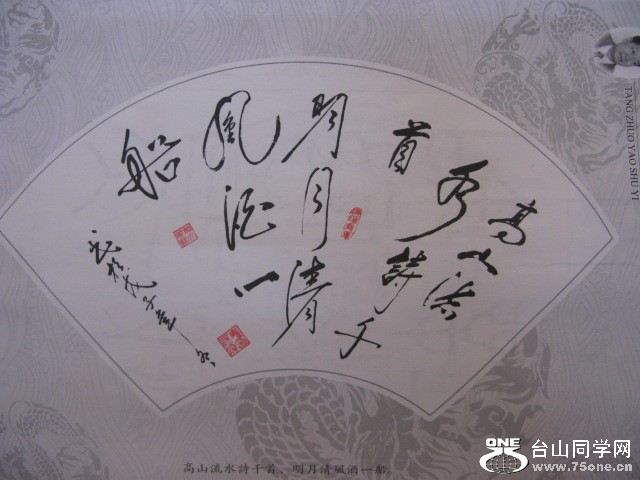 高山流
水詩千
首
明月清
風酒一
船
TANG ZHUO YAO SHU YI
高山流水詩千首，明月清風酒一船
ONE
台山同学网
www.75one.cn